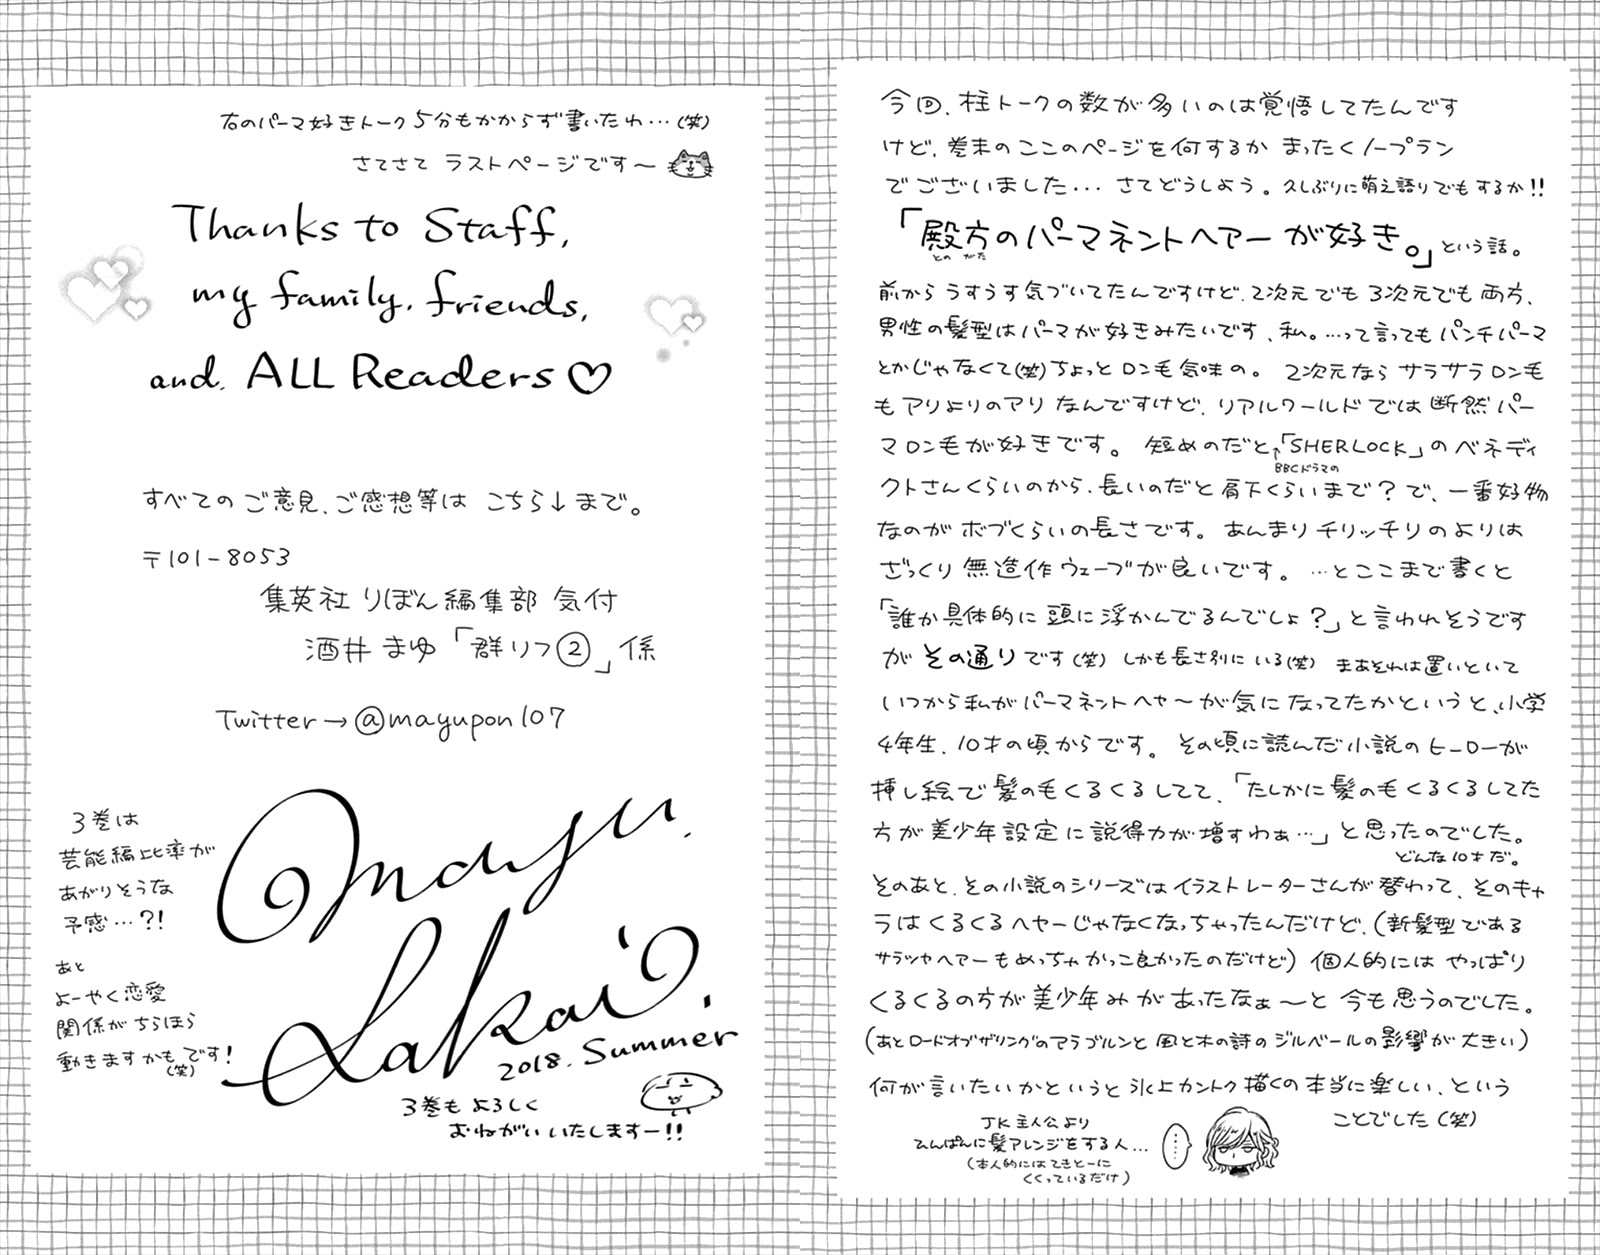 今回、柱トークの数が多いのは覚悟してたんです
けど、巻末のここのページを何するか まったくノープラン
でございました... さてどうしよう。久しぶりに萌え語りでもするか!!
「殿方のパーマネントヘアーが好き。」という話。
との がた
前から うすうす気づいてたんですけど、2次元でも 3次元でも 両方、
男性の髪型はパーマが好きみたいです、私。…って言ってもパンチパーマ
とかじゃなくて(笑)ちょっと ロン毛気味の。 2次元なら サラサラロン毛
も アリよりのアリ なんですけど、リアルワールドでは断然パー
マロン毛が好きです。 短めのだと「SHERLOCK」のベネディ
↑BBCドラマの
クトさんくらいのから、長いのだと肩下くらいまで?で、一番好物
なのが ボブくらいの長さです。 あんまりチリッチリのよりは
ざっくり 無造作ウェーブが良いです。 …とここまで書くと
「誰か具体的に頭に浮かんでるんでしょ?」と言われそうです
が その通りです(笑) しかも長さ別にいる(笑) まあそれは置いといて
いつから私が パーマネントヘヤ～が気になってたかというと、小学
4年生、10才の頃からです。 その頃に読んだ小説のヒーローが
挿し絵で髪の毛くるくるしてて、「たしかに髪の毛くるくるしてた
方が美少年設定に説得力が増すわぁ…」と思ったのでした。
どんな10才だ。
そのあと、その小説のシリーズはイラストレーターさんが替わって、そのキャ
ラはくるくるヘヤーじゃなくなっちゃったんだけど、(新髪型である
サラツヤヘアーもめっちゃかっこ良かったのだけど) 個人的には やっぱり
くるくるの方が美少年みがあったなぁ～と 今も思うのでした。
(あとロードオブザリングのアラゴルンと 風と木の詩のジルベールの影響が大きい)
何が言いたいかというと氷上カントク描くの本当に楽しい、という
ことでした(笑)
JK主人公より
ひんぱんに髪アレンジをする人...
(本人的にはてきとーに
くくっているだけ)
……
右のパーマ好きトーク 5分もかからず書いたわ…(笑)
さてさて ラストページです～
Thanks to Staff,
my family, friends,
and, ALL Readers♡
すべてのご意見、ご感想等は こちら↓まで。
〒101-8053
集英社 りぼん編集部 気付
酒井 まゆ「群リフ②」係
Twitter→@mayupon107
3巻は
芸能編比率が
あがりそうな
予感…?!
あと
よーやく恋愛
関係がちらほら
動きますかもです!
(笑)
mayu.
Sakai.
2018. Summer
3巻もよろしく
おねがいいたしますー!!